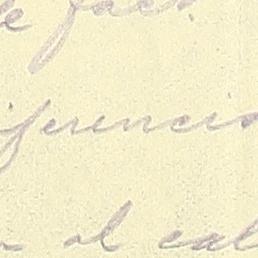 e fac
iferencia
al cal